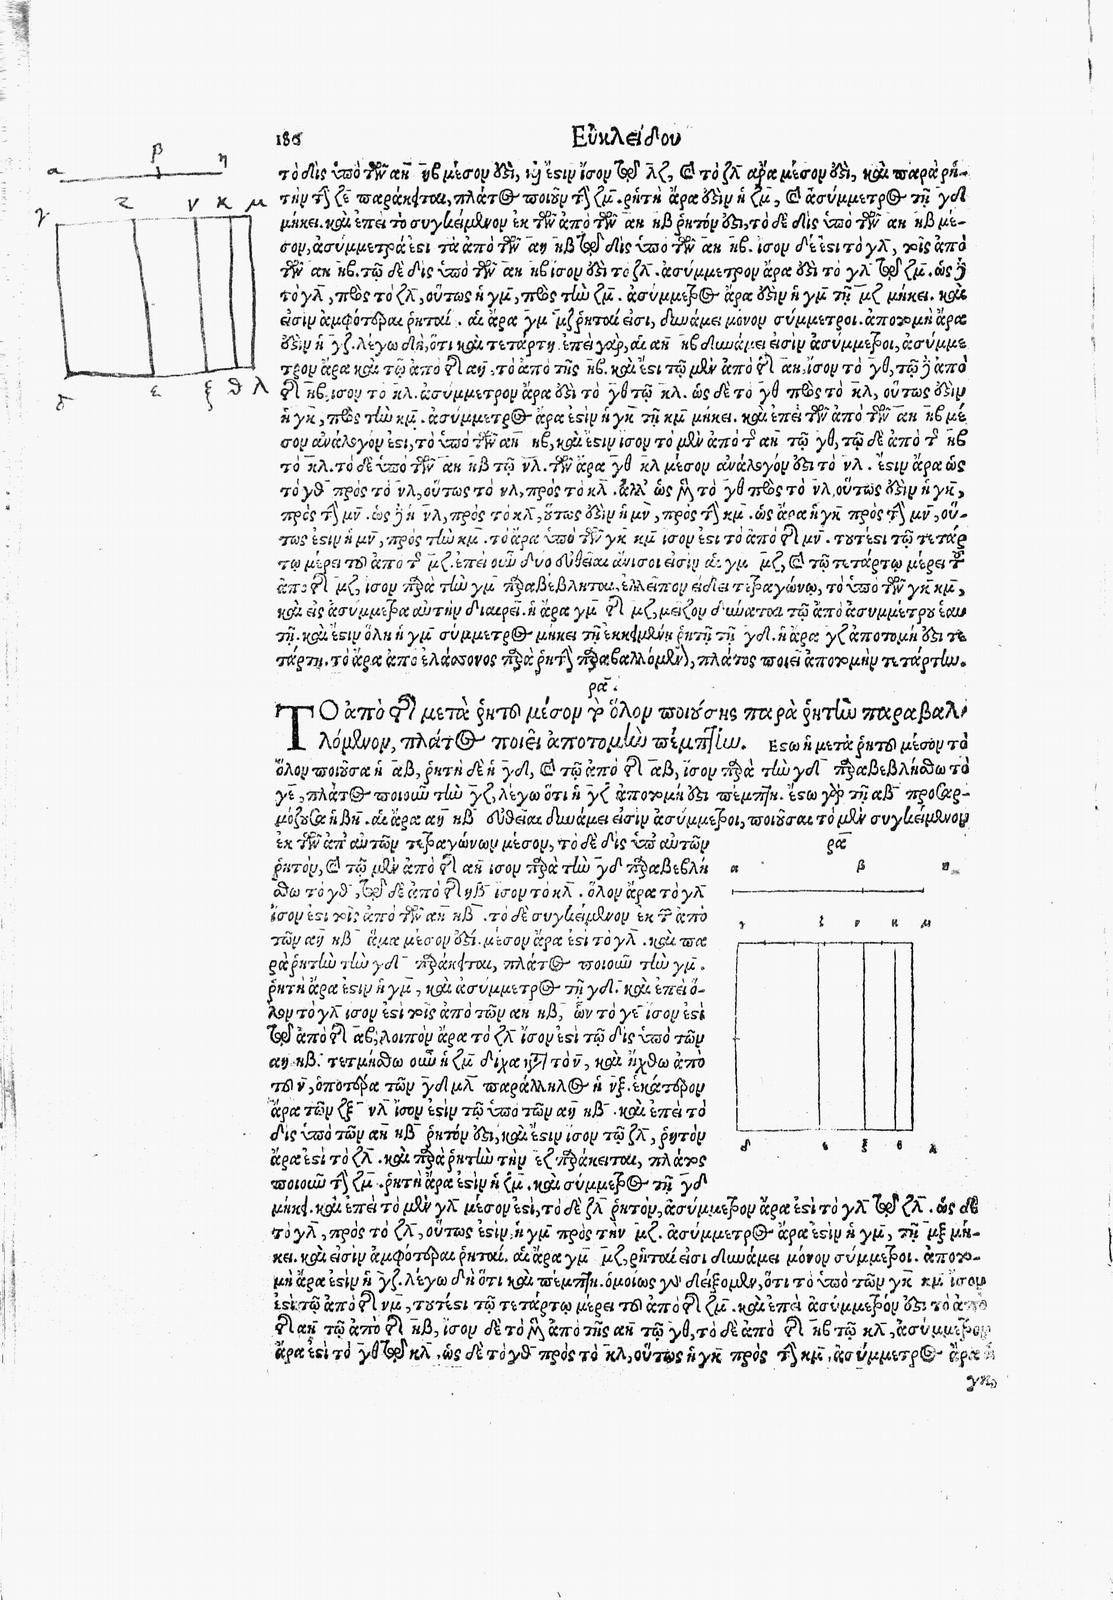 186 Εὐκλείδου
α β η
γ ζ ν κ μ
δ ε ξ θ λ
τὸ δὶς ὑπὸ τῶν αη ηβ μέσον ἐστὶ, καὶ ἔστιν ἴσον τῷ λζ, καὶ τὸ ζλ ἄρα μέσον ἐστὶ, καὶ παρὰ ῥη-
τὴν τὴν ζε παράκειται, πλάτος ποιοῦν τὴν ζμ. ῥητὴ ἄρα ἐστὶν ἡ ζμ, καὶ ἀσύμμετρος τῇ γδ
μήκει. καὶ ἐπεὶ τὸ συγκείμενον ἐκ τῶν ἀπὸ τῶν αη ηβ ῥητόν ἐστι, τὸ δὲ δὶς ὑπὸ τῶν αη ηβ μέ-
σον, ἀσύμμετρά ἐστι τὰ ἀπὸ τῶν αη ηβ τῷ δὶς ὑπὸ τῶν αη ηβ. ἴσον δέ ἐστι τὸ γλ, τοῖς ἀπὸ
τῶν αη ηβ. τῷ δὲ δὶς ὑπὸ τῶν αη ηβ ἴσον ἐστὶ τὸ ζλ. ἀσύμμετρον ἄρα ἐστὶ τὸ γλ τῷ ζμ. ὡς δὲ
τὸ γλ, πρὸς τὸ ζλ, οὕτως ἡ γμ, πρὸς τὴν ζμ. ἀσύμμετρος ἄρα ἐστὶν ἡ γμ τῇ μζ μήκει. καὶ
εἰσὶν ἀμφότεραι ῥηταί. αἱ ἄρα γμ μζ ῥηταί εἰσι, δυνάμει μόνον σύμμετροι. ἀποτομὴ ἄρα
ἐστὶν ἡ γζ. λέγω δὴ, ὅτι καὶ τετάρτη. ἐπεὶ γὰρ, αἱ αη ηβ δυνάμει εἰσὶν ἀσύμμετροι, ἀσύμμε
τρον ἄρα καὶ τῷ ἀπὸ τῆς αη, τὸ ἀπὸ τῆς ηβ. καὶ ἐστὶ τῷ μὲν ἀπὸ τῆς αη, ἴσον τὸ γθ, τῷ δὲ ἀπὸ
τῆς ηβ, ἴσον τὸ κλ. ἀσύμμετρον ἄρα ἐστὶ τὸ γθ τῷ κλ. ὡς δὲ τὸ γθ πρὸς τὸ κλ, οὕτως ἐστὶν
ἡ γκ, πρὸς τὴν κμ. ἀσύμμετρος ἄρα ἐστὶν ἡ γκ τῇ κμ μήκει. καὶ ἐπεὶ τῶν ἀπὸ τῶν αη ηβ μέ
σον ἀνάλογόν ἐστι, τὸ ὑπὸ τῶν αη ηβ, καὶ ἔστιν ἴσον τὸ μὲν ἀπὸ τῆς αη τῷ γθ, τῷ δὲ ἀπὸ τῆς ηβ
τὸ κλ. τὸ δὲ ὑπὸ τῶν αη ηβ τῷ νλ. τῶν ἄρα γθ κλ μέσον ἀνάλογόν ἐστι τὸ νλ. ἔστιν ἄρα ὡς
τὸ γθ πρὸς τὸ νλ, οὕτως τὸ νλ, πρὸς τὸ κλ. ἀλλ' ὡς μὲν τὸ γθ πρὸς τὸ νλ, οὕτως ἐστὶν ἡ γκ,
πρὸς τὴν μν. ὡς δὲ ἡ νλ, πρὸς τὸ κλ, οὕτως ἐστὶν ἡ μν, πρὸς τὴν κμ. ὡς ἄρα ἡ γκ πρὸς τὴν μν, οὕ-
τως ἐστὶν ἡ μν, πρὸς τὴν κμ. τὸ ἄρα ὑπὸ τῶν γκ κμ ἴσον ἐστὶ τὸ ἀπὸ τῆς μν. τουτέστι τῷ τετάρ
τῳ μέρει τοῦ ἀπὸ τῆς μζ. ἐπεὶ οὖν δύο εὐθεῖαι ἄνισοι εἰσὶν αἱ γμ μζ, καὶ τῷ τετάρτῳ μέρει τοῦ
ἀπὸ τῆς μζ, ἴσον παρὰ τὴν γμ παραβέβληται, ἐλλεῖπον εἴδει τετραγώνῳ, τὸ ὑπὸ τῶν γκ κμ,
καὶ εἰς ἀσύμμετρα αὐτὴν διαιρεῖ. ἡ ἄρα γμ τῆς μζ, μεῖζον δύναται τῷ ἀπὸ ἀσυμμέτρου ἑαυ
τῇ. καὶ ἔστιν ὅλη ἡ γμ σύμμετρος μήκει τῇ ἐκκειμένῃ ῥητῇ τῇ γδ. ἡ ἄρα γζ ἀποτομή ἐστι τε
τάρτη. τὸ ἄρα ἀπὸ ἐλάσσονος παρὰ ῥητὴν παραβαλλόμενον, πλάτος ποιεῖ ἀποτομὴν τετάρτην.
ρα.
ΤΟ ἀπὸ τῆς μετὰ ῥητοῦ μέσον τὸ ὅλον ποιούσης παρὰ ῥητὴν παραβαλ-
λόμενον, πλάτος ποιεῖ ἀποτομὴν πέμπτην. Εστω ἡ μετὰ ῥητοῦ μέσον τὸ
ὅλον ποιοῦσα ἡ αβ, ῥητὴ δὲ ἡ γδ, καὶ τῷ ἀπὸ τῆς αβ, ἴσον παρὰ τὴν γδ παραβεβλήσθω τὸ
γε, πλάτος ποιοῦν τὴν γζ, λέγω ὅτι ἡ γζ ἀποτομή ἐστι πέμπτη. ἔστω γὰρ τῇ αβ προσαρ-
μόζουσα ἡ βη. αἱ ἄρα αη ηβ εὐθεῖαι δυνάμει εἰσὶν ἀσύμμετροι, ποιοῦσαι τὸ μὲν συγκείμενον
ἐκ τῶν ἀπ' αὐτῶν τετραγώνων μέσον, τὸ δὲ δὶς ὑπ' αὐτῶν
ῥητόν, καὶ τῷ μὲν ἀπὸ τῆς αη ἴσον παρὰ τὴν γδ παραβεβλή
σθω τὸ γθ, τῷ δὲ ἀπὸ τῆς ηβ ἴσον τὸ κλ. ὅλον ἄρα τὸ γλ
ἴσον ἐστὶ τοῖς ἀπὸ τῶν αη ηβ. τὸ δὲ συγκείμενον ἐκ τῶν ἀπὸ
τῶν αη ηβ ἅμα μέσον ἐστί. μέσον ἄρα ἐστὶ τὸ γλ. καὶ πα
ρὰ ῥητὴν τὴν γδ παράκειται, πλάτος ποιοῦν τὴν γμ.
ῥητὴ ἄρα ἐστὶν ἡ γμ, καὶ ἀσύμμετρος τῇ γδ. καὶ ἐπεὶ ὅ-
λον τὸ γλ ἴσον ἐστὶ τοῖς ἀπὸ τῶν αη ηβ, ὧν τὸ γε ἴσον ἐστὶ
τῷ ἀπὸ τῆς αβ, λοιπὸν ἄρα τὸ ζλ ἴσον ἐστὶ τῷ δὶς ὑπὸ τῶν
αη ηβ. τετμήσθω οὖν ἡ ζμ δίχα κατὰ τὸ ν, καὶ ἤχθω ἀπὸ
τοῦ ν, ὁποτέρᾳ τῶν γδ μλ παράλληλος ἡ νξ. ἑκάτερον
ἄρα τῶν ζξ νλ ἴσον ἐστὶν τῷ ὑπὸ τῶν αη ηβ. καὶ ἐπεὶ τὸ
δὶς ὑπὸ τῶν αη ηβ ῥητόν ἐστι, καὶ ἔστιν ἴσον τῷ ζλ, ῥητὸν
ἄρα ἐστὶ τὸ ζλ. καὶ παρὰ ῥητὴν τὴν εζ παράκειται, πλάτος
ποιοῦν τὴν ζμ. ῥητὴ ἄρα ἐστὶν ἡ ζμ. καὶ σύμμετρος τῇ γδ
ρα
α β η
γ ζ ν κ μ
δ ε ξ θ λ
μήκει. καὶ ἐπεὶ τὸ μὲν γλ μέσον ἐστὶ, τὸ δὲ ζλ ῥητόν, ἀσύμμετρον ἄρα ἐστὶ τὸ γλ τῷ ζλ. ὡς δὲ
τὸ γλ, πρὸς τὸ ζλ, οὕτως ἐστὶν, ἡ γμ πρὸς τὴν μζ. ἀσύμμετρος ἄρα ἐστὶν ἡ γμ, τῇ μξ μή-
κει. καὶ εἰσὶν ἀμφότεραι ῥηταί. αἱ ἄρα γμ μζ, ῥηταί εἰσι δυνάμει μόνον σύμμετροι. ἀποτο-
μὴ ἄρα ἐστὶν ἡ γζ. λέγω δὴ ὅτι καὶ πέμπτη. ὁμοίως γὰρ δείξομεν, ὅτι τὸ ὑπὸ τῶν γκ κμ ἴσον
ἐστὶ τῷ ἀπὸ τῆς νμ, τουτέστι τῷ τετάρτῳ μέρει τοῦ ἀπὸ τῆς ζμ. καὶ ἐπεὶ ἀσύμμετρόν ἐστι τὸ ἀπὸ
τῆς αη τῷ ἀπὸ τῆς ηβ, ἴσον δὲ τὸ μὲν ἀπὸ τῆς αη τῷ γθ, τὸ δὲ ἀπὸ τῆς ηβ τῷ κλ, ἀσύμμετρον
ἄρα ἐστὶ τὸ γθ τῷ κλ, ὡς δὲ τὸ γθ πρὸς τὸ κλ, οὕτως ἡ γκ πρὸς τὴν κμ, ἀσύμμετρος ἄρα ἡ
γκ,